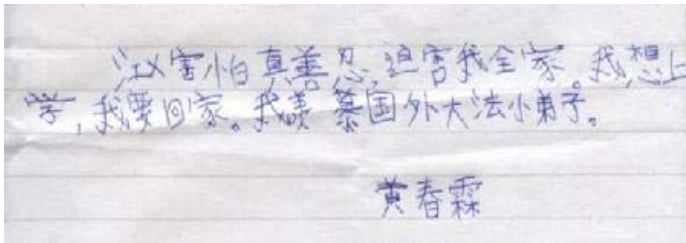 江害怕真善忍,迫害我全家。我想上
学,我要回家。我羡慕国外大法小弟子。
黄春霖